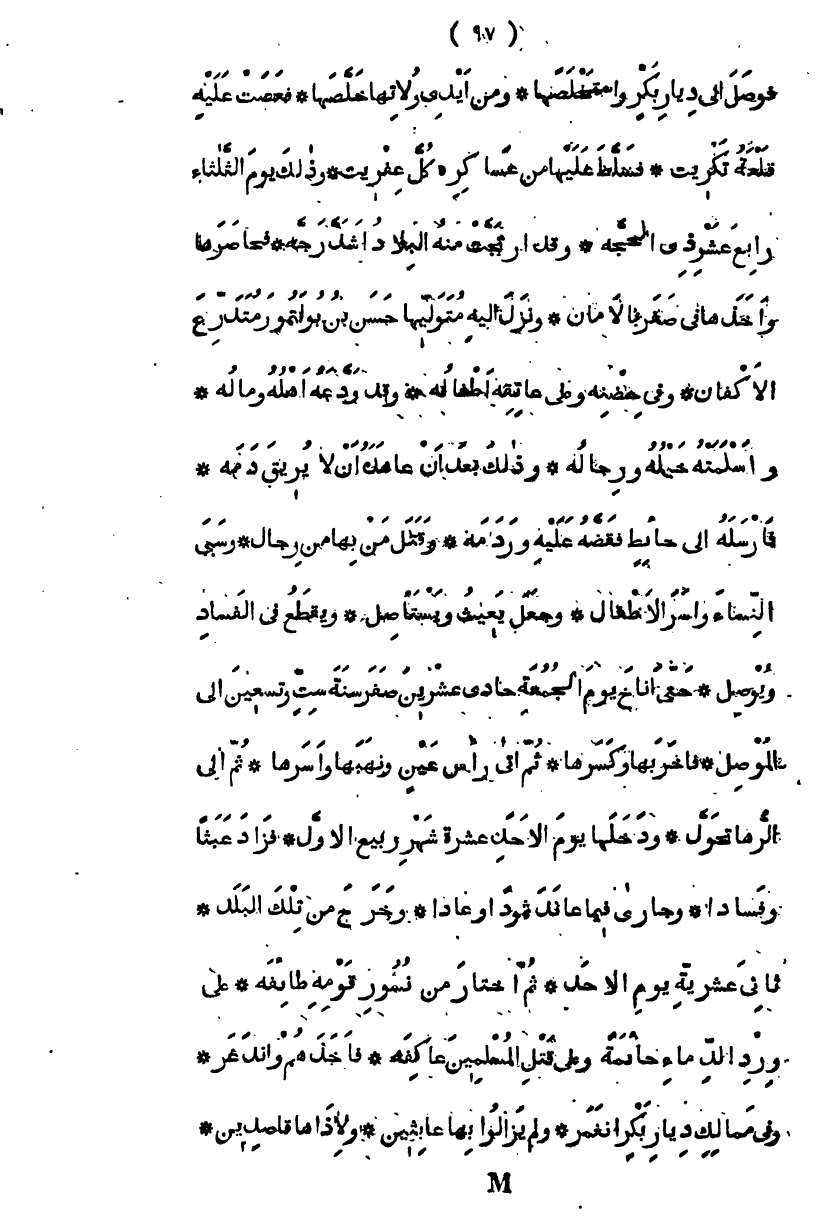 ( ٩٧ )
فوصَلَ الى دِيارِ بَكْرٍ واستَخْلَصَها * ومن اَيْدى وُلاتِها خَلَّصَها * فعَصَتْ عَلَيْه
قَلْعَةُ تَكْرِيت * فسَلَّطَ عَلَيْها من عَساكِرِه كُلَّ عِفْرِيت * وذٰلكَ يومَ الثَّلٰثاءِ
رابِعَ عَشْرِ ذى الحجّه * وقد ارتَجَّتْ منهُ البِلادُ اَشَدَّ رَجَّه * فحاصَرَها
واَخَذَها فى صَفَر بالاَمان * ونَزَلَ اليهِ مُتَوَلِّيها حَسَن بنُ بُولتَمُور مُتَدَرِّعَ
الاَكْفان * وفى حِضْنِه وعلى عاتِقه اَطْفالُه * وقد وَدَّعَهُ اَهْلُهُ ومالُه *
واَسْلَمَتْهُ خَيْلُهُ ورِجالُه * وذٰلكَ بَعْدَ اَنْ عاهَدَهُ اَنْ لا يُرِيقَ دَمَه *
فَاَرْسَلَهُ الى حائِطٍ فقَضَّهُ عَلَيْهِ ورَدَمَه * وقَتَلَ مَنْ بِها من رِجال * وسَبَى
النِّساءَ واَسَرَ الاَطْفال * وجعَلَ يَعِيثُ ويَسْتَأصِل * ويقطَعُ فى الفَسادِ
ويُوصِل * حَتّى اَناخَ يومَ الجُمُعَةِ حادى عشْرِينَ صَفَرَ سَنَةَ سِتٍّ وتسعِينَ الى
المُوْصِل * فاخرَبَها وكَسَّرَها * ثُمّ اَتى رأسَ عَيْنٍ ونهَبَها واَسَرَها * ثُمّ الى
الرُّها تحَوَّل * ودَخَلَها يومَ الاَحَدِ عشرة شَهْرِ ربيع الاوّل * فزادَ عَبَثًا
وفَسادا * وجارىٰ فيما عانَدَ ثمودًا وعادا * وخَرَجَ من تِلْكَ البَلَد *
ثانِىَ عشريّهِ يومِ الاحَد * ثُمّ اختارَ من نُسُورِ قَوْمِهِ طائِفَه * على
وِرْدِ الدِّماءِ حائمَةً وعلى قَتْلِ المُسْلِمِينَ عاكِفَه * فاَخَذَهُمْ وانْدَغَر *
وفى مَمالِكِ دِيارِ بَكْرٍ انغَمَر * ولم يَزالُوا بِها عابِثِين * ولِاَذاها قاصِدِين *
M